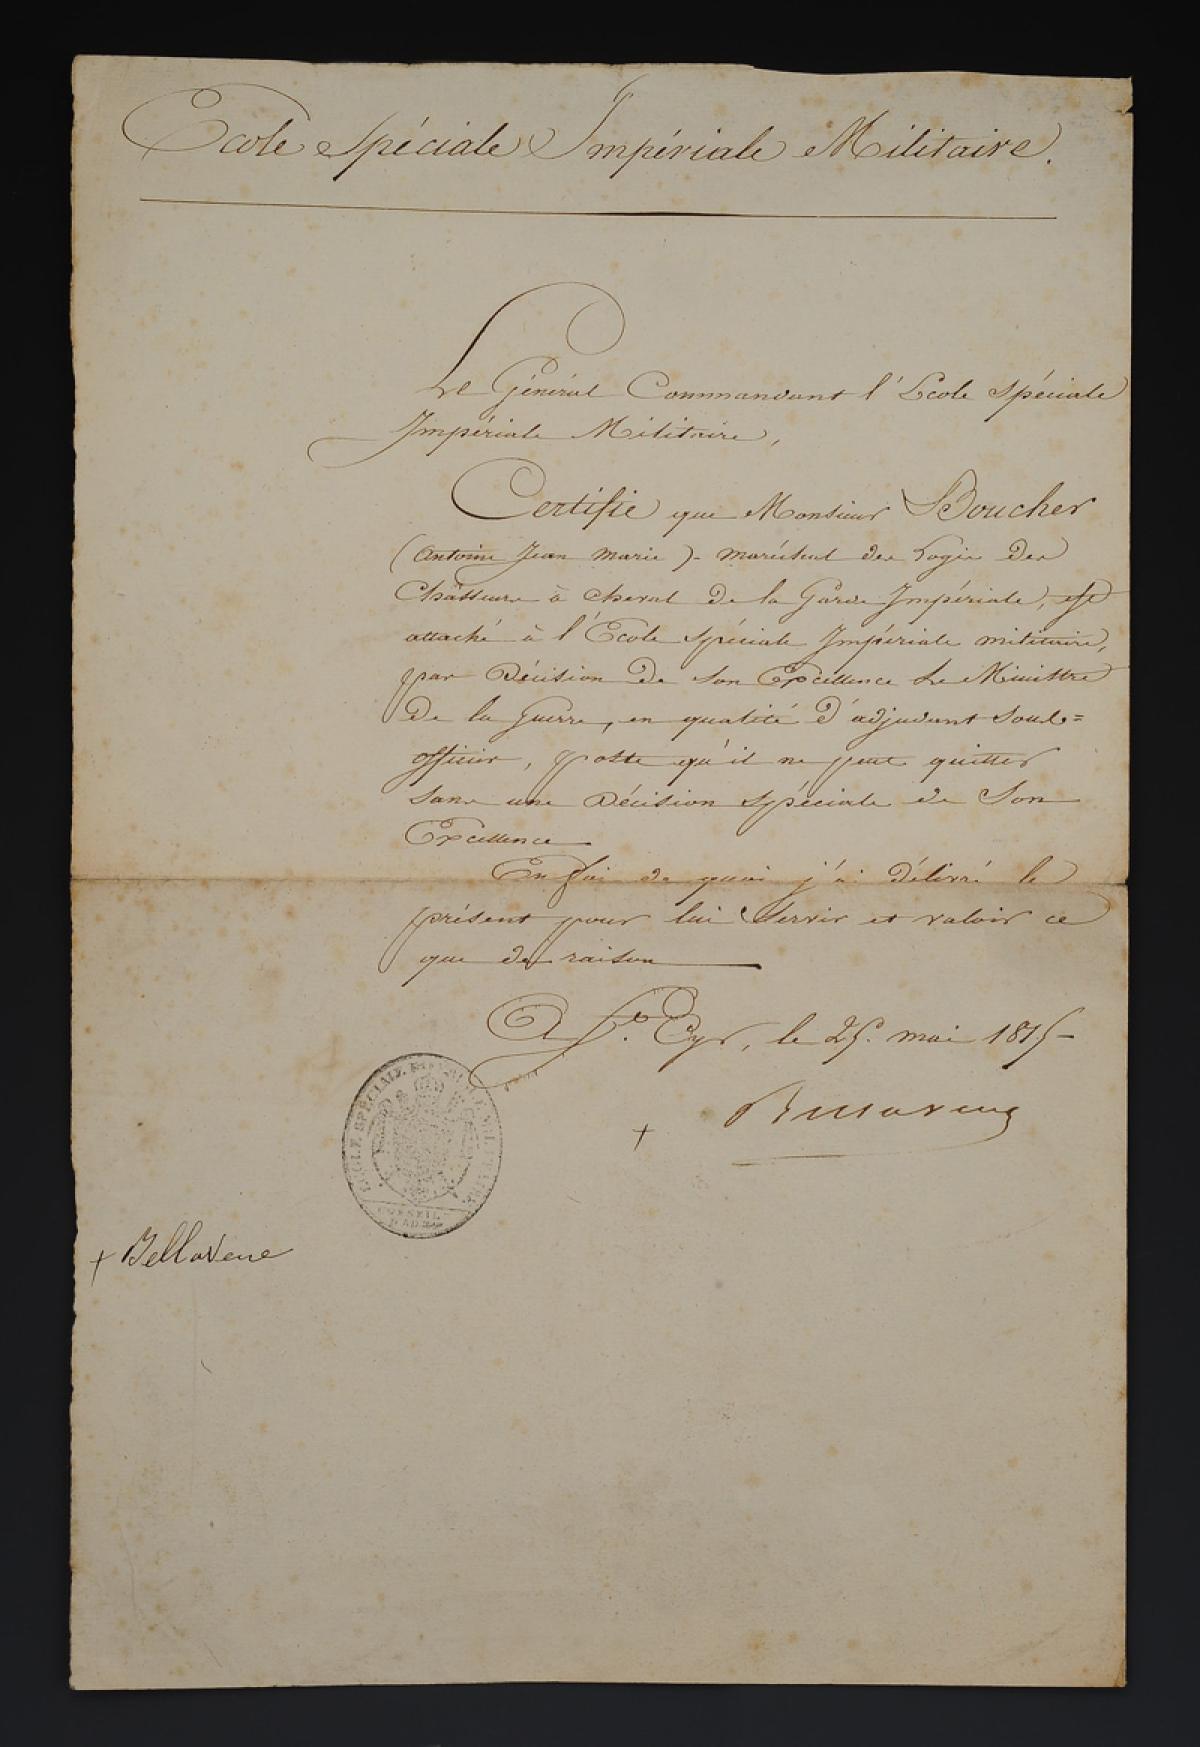 Ecole Spéciale Impériale Militaire.
Le Général Commandant l'Ecole Spéciale
Impériale Militaire,
Certifie que Monsieur Boucher
(Antoine Jean Marie) - maréchal des logis des
Chasseurs à cheval de la Garde Impériale, est
attaché à l'Ecole Spéciale Impériale militaire,
par Décision de Son Excellence Le Ministre
De la Guerre, en qualité d'adjudant Sous=
officier, poste qu'il ne peut quitter
sans une Décision Spéciale de Son
Excellence
En foi de quoi j'ai délivré le
présent pour lui Servir et valoir ce
que de raison
A St. Cyr, le 25. mai 1815-
Bellavene
+
ECOLE SPÉCIALE IMPÉRIALE MILITAIRE
CONSEIL
D'ADM
+ Bellavene